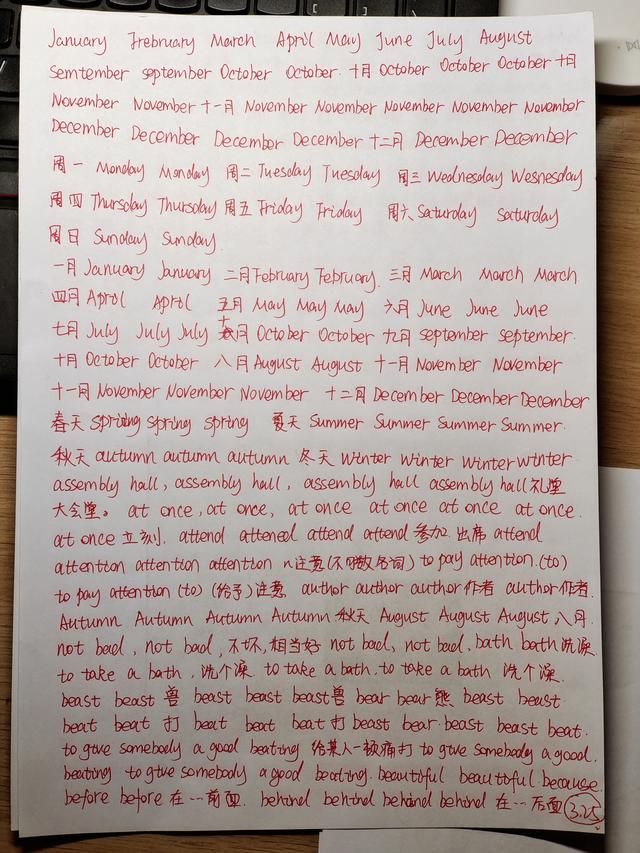 January Frebruary March April May June July August
Semtember september October October. 十月 October October October 十月
November November 十一月 November November November November November
December December December December 十二月 December December
周一 Monday Monday 周二 Tuesday Tuesday 周三 Wednesday Wesnesday
周四 Thursday Thursday 周五 Friday Friday 周六 Saturday Saturday
周日 Sunday Sunday.
一月 January January 二月 February February. 三月 March March March
四月 April April 五月 May May May 六月 June June June
七月 July July July 十月 October October 九月 september september.
十月 October October 八月 August August 十一月 November November
十一月 November November November 十二月 December December December
春天 spriding spring spring 夏天 Summer Summer Summer Summer.
秋天 autumn autumn autumn 冬天 winter winter winter winter
assembly hall, assembly hall, assembly hall assembly hall 礼堂
大会堂。 at once, at once, at once at once at once at once.
at once 立刻. attend attened attend attend 参加. 出席 attend
attention attention attention n注意(不可数名词) to pay attention.(to)
to pay attention (to) (给予)注意 author author author 作者 author 作者.
Autumn Autumn Autumn Autumn 秋天 August August August 八月.
not bad, not bad, 不坏,相当好 not bad, not bad. bath bath 洗澡
to take a bath, 洗个澡 to take a bath. to take a bath 洗个澡.
beast beast 兽 beast beast beast 兽 bear bear 熊 beast beast.
beat beat 打 beat beat beat 打 beast bear. beast beast beat.
to give somebody a good beating 给某人一顿痛打 to give somebody a good.
beating to give somebody a good beating. beautiful beautiful because.
before before 在…前面. behind behind behind behind 在…后面 3.25